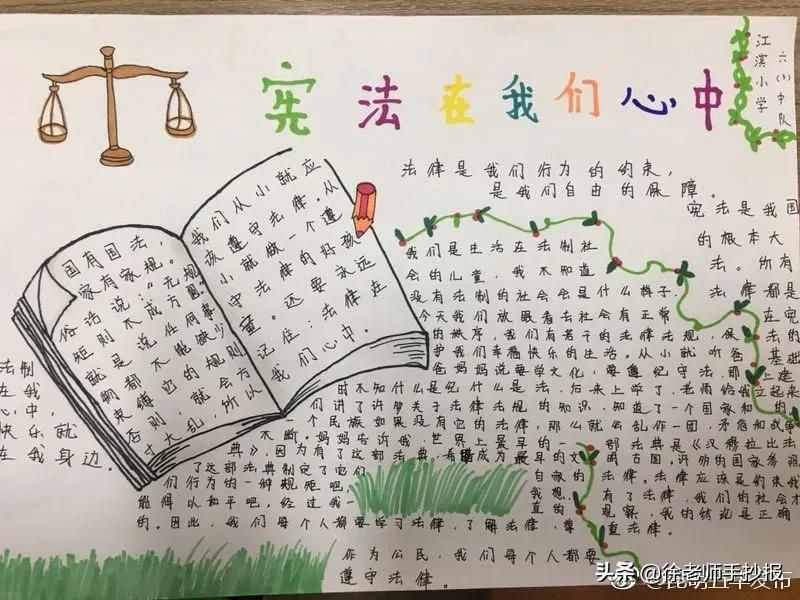 宪法在我们心中
江滨小学
六(1)中队
法律是我们行为的约束，
是我们自由的保障。
国有国法，
家有家规。
俗话说：“无规
矩则不成方圆”
就是说任何事
物都不能缺少
束缚它的规则
否则，就会方
寸大乱，所以
我们从小就应
该遵守法律。从
小就做一个遵
守法律的好孩
童。还要永远
记住：法律在
我们心中。
宪法是我国
的根本大
法。所有
法律都是
在宪
法的
基础
上建
立起来
的
我们是生活在法制社
会的儿童，我不知道
没有法制的社会会是什么样子，
今天我们放眼看去社会有正常
的秩序，我们有若干的法律法规，保
护我们幸福快乐的生活。从小就听爸
爸妈妈说要学文化，要遵纪守法那
时不知什么是纪什么是法，后来上学了，老师给我
们讲了许多关于法律法规的知识，知道了一个国家和
一个民族如果没有它的法律，那么就会乱作一团，矛盾和战争
不断。妈妈告诉我，世界上最早的一部法典是《汉穆拉比法
典》，因为有了这部法典，希
成为最早的文明古国。许多的国家参照
了这部法典制定了它们
自家的法律。法律应该是约束我
们行为的一种规矩吧，
我想，有了法律，我们的社会才
能得以和平吧，经过我一
直的观察，我的结论是正确
的。因此，我们每个人都要学习法律，了解法律，尊重法律。
作为公民，我们每个人都要
遵守法律。
法制
在我
心中，
快乐就
在我身边。
头条@徐老师手抄报